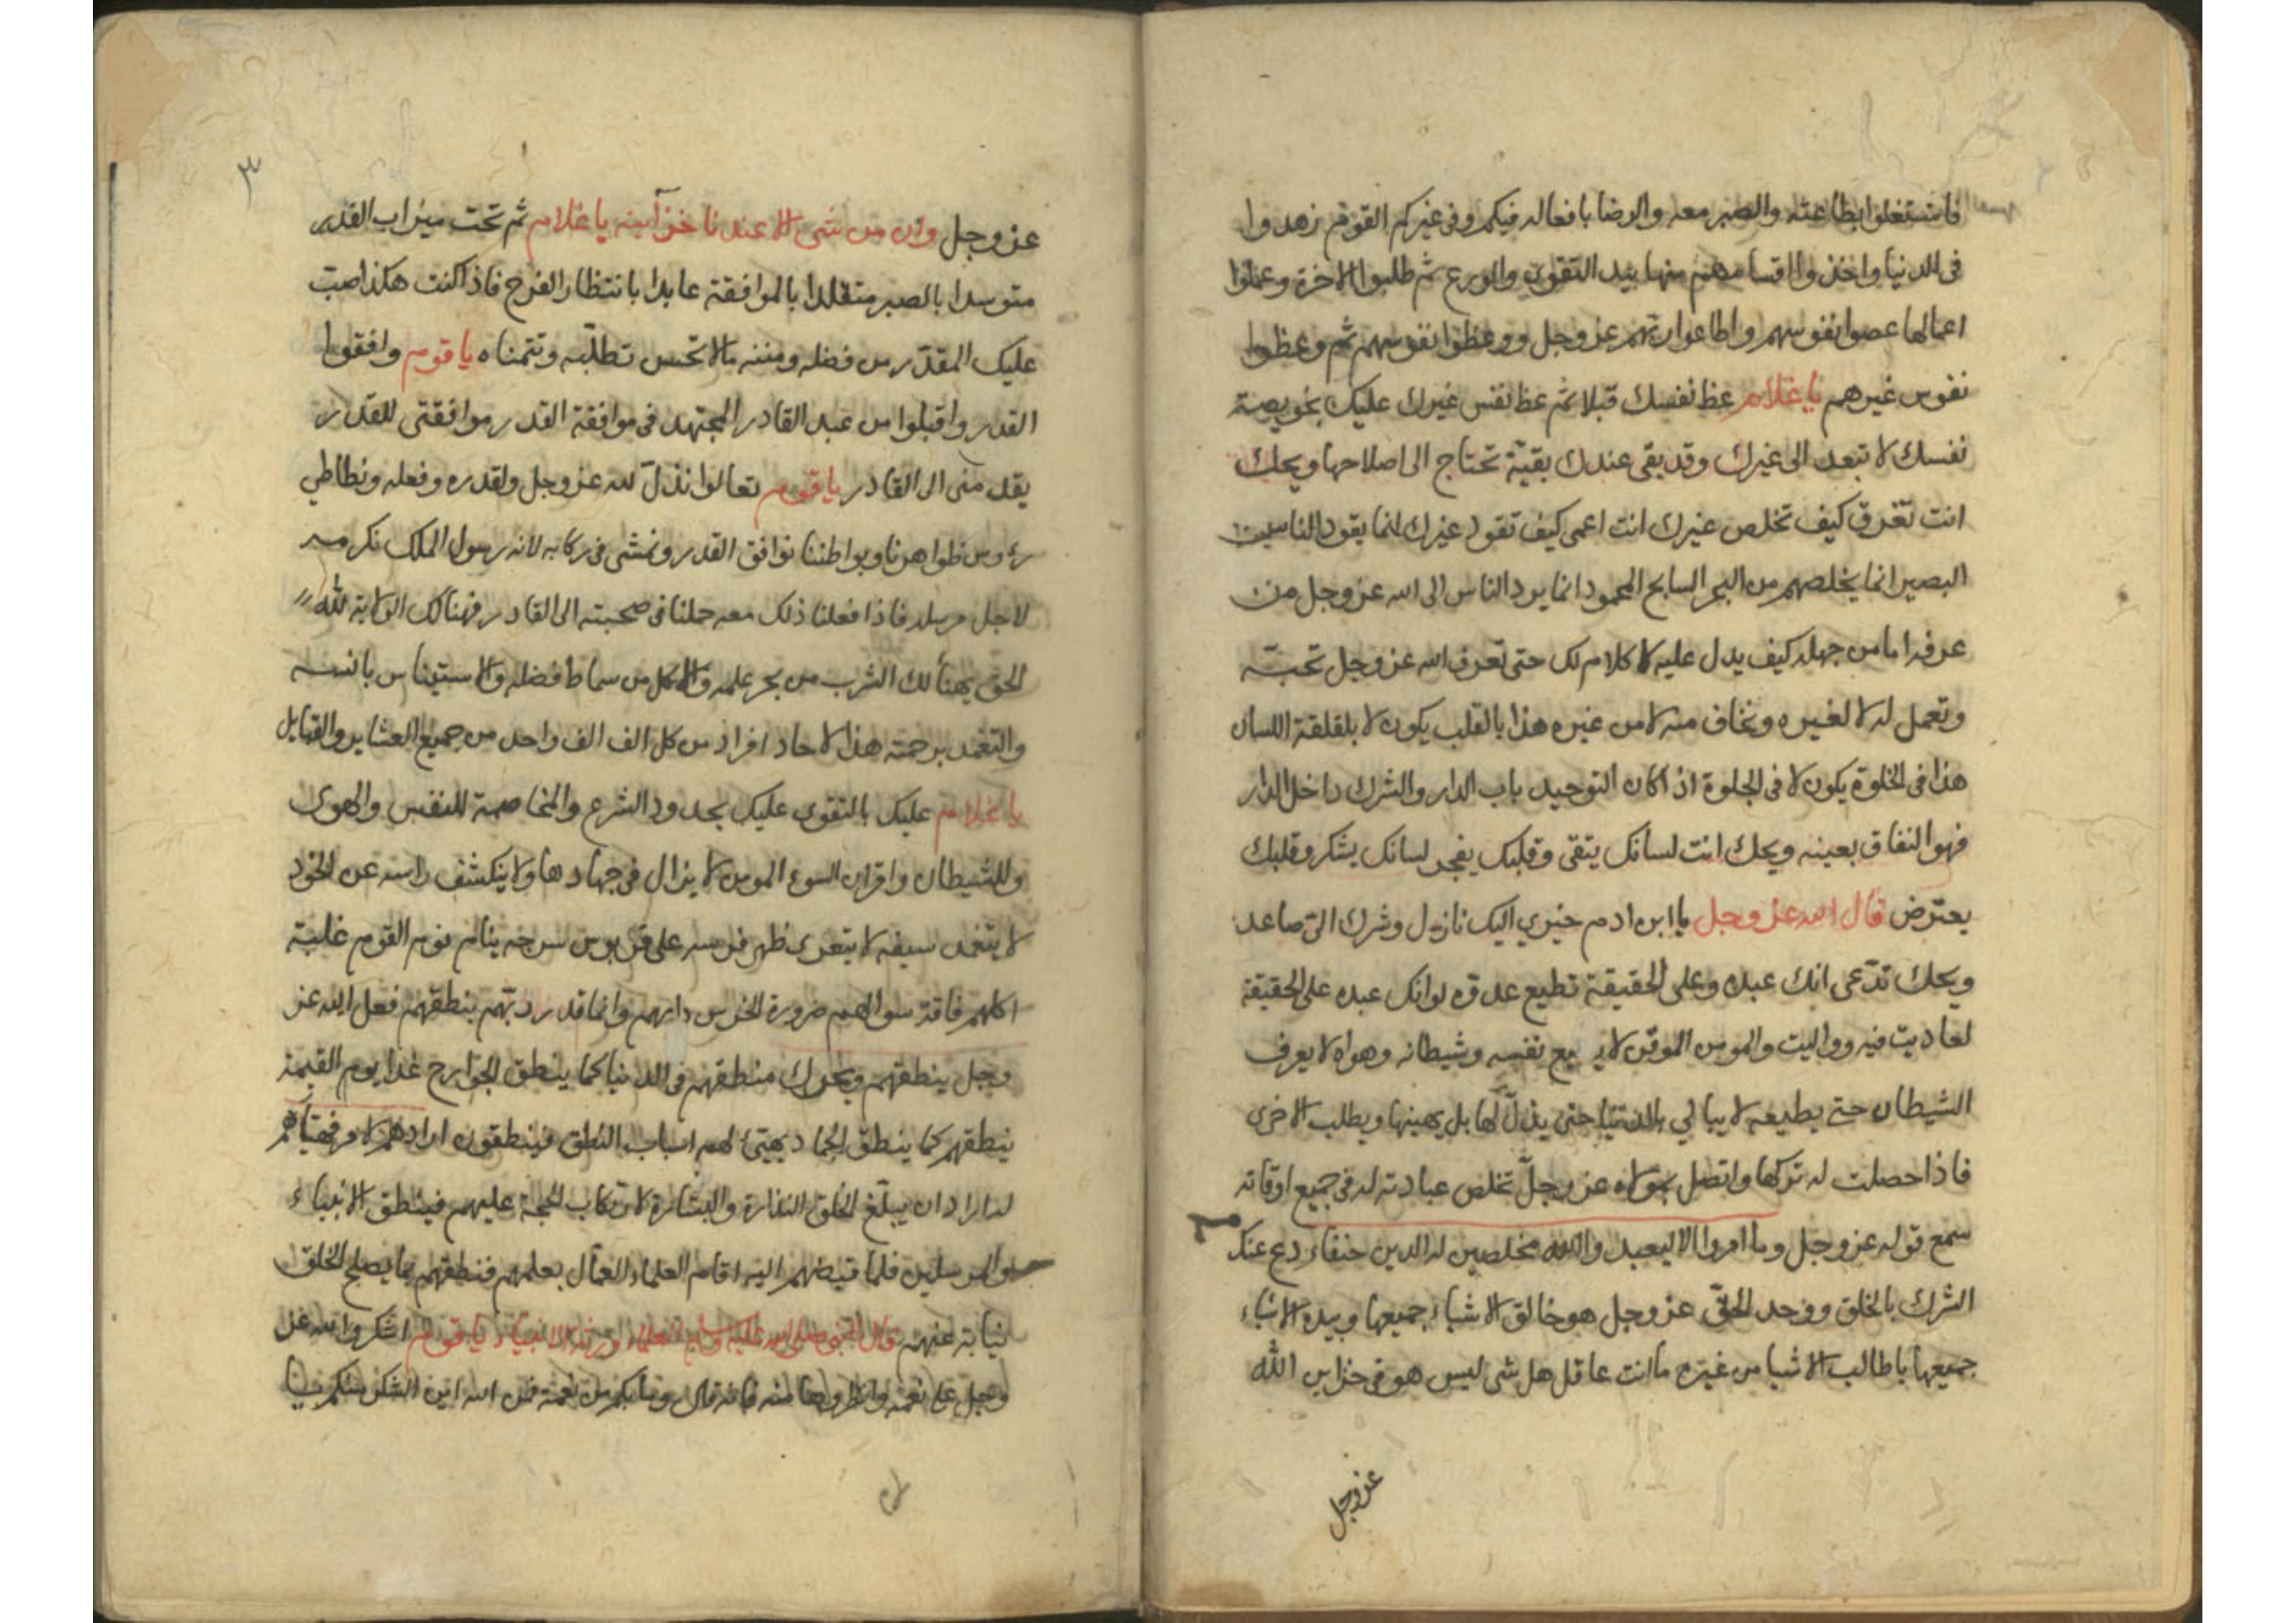 فاشتغلوا بطاعته والصبر معه والرضا بافعاله فيكم وفى غيركم القوم زهدوا
فى الدنيا واخذوا اقسامهم منها بيد التقوى والورع ثم طلبوا الاخرة وعملوا
اعمالها عصوا نفوسهم واطاعوا ربهم عز وجل ووعظوا نفوسهم ثم وعظوا
نفوس غيرهم يا غلام عظ نفسك قبلا ثم عظ نفس غيرك عليك بخويصة
نفسك لا تبعد الى غيرك وقد بقى عندك بقية تحتاج الى اصلاحها ويحك
انت تغرق كيف تخلص غيرك انت اعمى كيف تقود غيرك انما يقود الناس
البصير انما يخلصهم من البحر السابح المحمود انما يرد الناس الى الله عز وجل من
عرفه اما من جهله كيف يدل عليه لا كلام لك حتى تعرف الله عز وجل تحبه
وتعمل له لا لغيره وتخاف منه لا من غيره هذا بالقلب يكون لا بلقلقة اللسان
هذا فى الخلوة يكون لا فى الجلوة اذا كان التوحيد باب الدار والشرك داخل الدار
فهو النفاق بعينه ويحك انت لسانك يتقى وقلبك يفجر لسانك يشكر وقلبك
يعترض قال الله عز وجل يا ابن ادم خيري اليك نازل وشرك الي صاعد
ويحك تدعى انك عبده وعلى الحقيقة تطيع عدوه لو انك عبده على الحقيقة
لعاديت فيه وواليت والمومن الموقن لا يطيع نفسه وشيطانه وهواه لا يعرف
الشيطان حتى يطيعه لا يبالي بالدنيا حتى يذل لها بل يهينها ويطلب الاخرى
فاذا حصلت له تركها واتصل بمولاه عز وجل تخلص عبادته له فى جميع اوقاته
سمع قوله عز وجل وما امروا الا ليعبدوا الله مخلصين له الدين حنفاء دع عنك
الشرك بالخلق ووحد الحق عز وجل هو خالق الاشياء جميعها وبيده الاشياء
جميعها يا طالب الاشيا من غيره ما انت عاقل هل شى ليس هو فى خزاين الله
عز وجل
٣
عز وجل وان من شى الا عندنا خزائنه يا غلام ثم تحت ميزاب القدر
متوسدا بالصبر متقلدا بالموافقة عابدا بانتظار الفرج فاذا كنت هكذا صب
عليك المقدر من فضله ومننه ما لا تحس تطلبه وتتمناه يا قوم وافقوا
القدر واقبلوا من عبد القادر المجتهد فى موافقة القدر موافقتى للقدر
يقد منى الى القادر يا قوم تعالوا نذل لله عز وجل ولقدره وفعله ونطاطي
رءوس ظواهرنا وبواطننا نوافق القدر ونمشى فى ركابه لانه رسول الملك نكرمه
لاجل مرسله فاذا فعلنا ذلك معه حملنا فى صحبته الى القادر فهنالك الولاية لله
الحق يهنأ لك الشرب من بحر علمه والاكل من سماط فضله والاستيناس بانسه
والتغمد برحمته هذا لاحاد افراد من كل الف الف واحد من جميع العشاير والقبايل
يا غلام عليك بالتقوى عليك بحدود الشرع والمخاصمة للنفس والهوى
وللشيطان واقران السوء المومن لا يزال فى جهادها ولا ينكشف راسه عن الخود
لا يتغمد سيفه لا يتعرى ظهر فرسه على قربوس سرجه ينام نوم القوم غلبة
اكلهم فاقة سوالهم ضرورة الخرس دابهم وانما قدر ربهم ينطقهم فعل الله عز
وجل ينطقهم ويحرك منطقهم فى الدنيا كما ينطق الجوارح غدا يوم القيمة
ينطقهم كما ينطق الجماد يهيئ لهم اسباب النطق فينطقون
اراد ان يبلغ الخلق النذارة والبشارة لارتكاب الحجة عليهم فينطق الانبياء
والمرسلين فلما قبضهم اليه اقام العلماء العمال بعلمهم فنطقهم بما يصلح الخلق
نيابة عنهم قال النبى صلى الله عليه وسلم العلماء ورثة الانبياء يا قوم اشكروا الله عز
وجل على نعمه وانظروها منه فانه قال وما بكم من نعمة فمن الله اين الشكر منكم يا